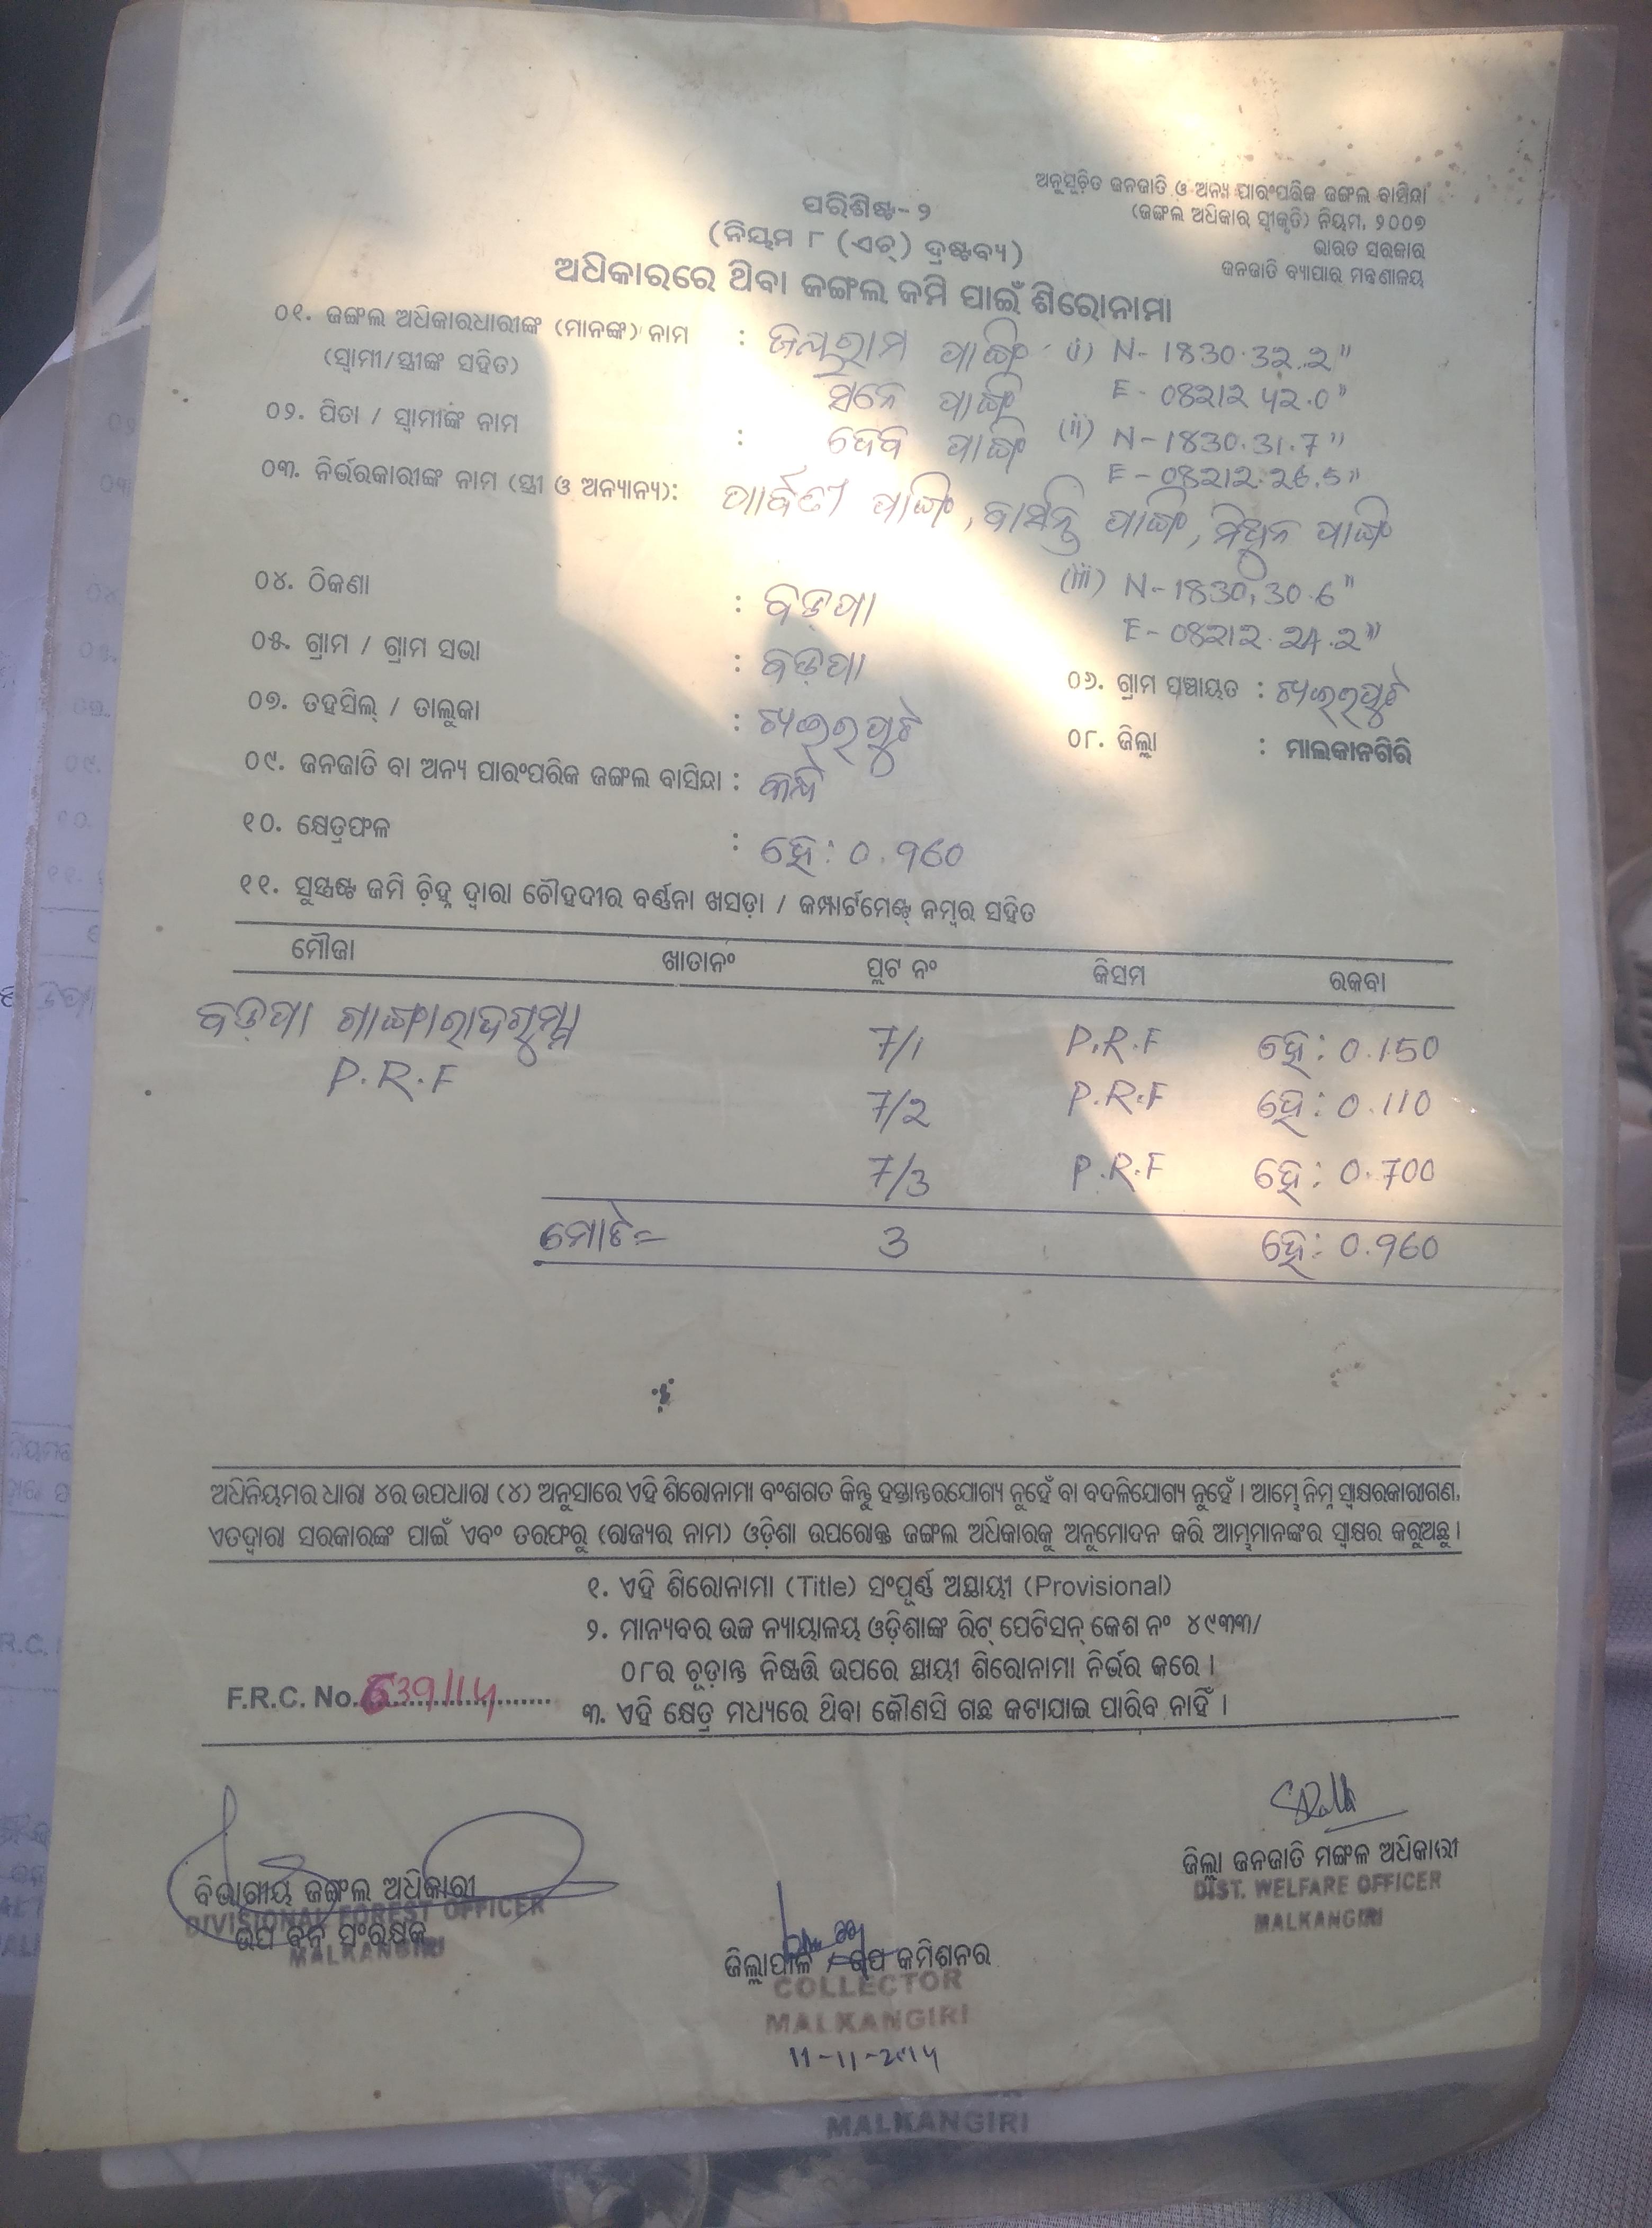 ଅନୁସୂଚିତ ଜନଜାତି ଓ ଅନ୍ୟ ପାରଂପରିକ ଜଙ୍ଗଲ ବାସିନ୍ଦା
(ଜଙ୍ଗଲ ଅଧିକାର ସ୍ୱୀକୃତି) ନିୟମ, ୨୦୦୭
ଭାରତ ସରକାର
ଜନଜାତି ବ୍ୟାପାର ମନ୍ତ୍ରଣାଳୟ
ପରିଶିଷ୍ଟ-୨
(ନିୟମ ୮ (ଏଚ୍) ଦ୍ରଷ୍ଟବ୍ୟ)
ଅଧିକାରରେ ଥିବା ଜଙ୍ଗଲ ଜମି ପାଇଁ ଶିରୋନାମା
୦୧. ଜଙ୍ଗଲ ଅଧିକାରଧାରୀଙ୍କ (ମାନଙ୍କ) ନାମ : ଜୟରାମ ପାଙ୍ଗି (i) N-1830.32.2"
(ସ୍ୱାମୀ/ସ୍ତ୍ରୀଙ୍କ ସହିତ) ସନେ ପାଙ୍ଗି E-08212 42.0"
୦୨. ପିତା / ସ୍ୱାମୀଙ୍କ ନାମ : ଦେବି ପାଙ୍ଗି (ii) N-1830.31.7"
E-08212.26.5"
୦୩. ନିର୍ଭରକାରୀଙ୍କ ନାମ (ସ୍ତ୍ରୀ ଓ ଅନ୍ୟାନ୍ୟ): ପାର୍ବତୀ ପାଙ୍ଗି, ବାସନ୍ତି ପାଙ୍ଗି, ମିଥୁନ ପାଙ୍ଗି
(iii) N-1830.30.6"
୦୪. ଠିକଣା : ବଡ଼ପା
E-08212.24.2"
୦୫. ଗ୍ରାମ / ଗ୍ରାମ ସଭା : ବଡ଼ପା ୦୬. ଗ୍ରାମ ପଞ୍ଚାୟତ :
୦୭. ତହସିଲ୍ / ତାଲୁକା : ୦୮. ଜିଲ୍ଲା : ମାଲକାନଗିରି
୦୯. ଜନଜାତି ବା ଅନ୍ୟ ପାରଂପରିକ ଜଙ୍ଗଲ ବାସିନ୍ଦା : କନ୍ଧ
୧୦. କ୍ଷେତ୍ରଫଳ : ହେ: 0.960
୧୧. ସୁସ୍ପଷ୍ଟ ଜମି ଚିହ୍ନ ଦ୍ୱାରା ଚୌହଦୀର ବର୍ଣ୍ଣନା ଖସଡ଼ା / କମ୍ପାର୍ଟମେଣ୍ଟ୍ ନମ୍ବର ସହିତ
ମୌଜା ଖାତାନଂ ପ୍ଲଟ ନଂ କିସମ ରକବା
ବଡ଼ପା 7/1 P.R.F ହେ: 0.150
P.R.F 7/2 P.R.F ହେ: 0.110
7/3 P.R.F ହେ: 0.700
ମୋଟ= 3 ହେ: 0.960
ଅଧିନିୟମର ଧାରା ୪ର ଉପଧାରା (୪) ଅନୁସାରେ ଏହି ଶିରୋନାମା ବଂଶଗତ କିନ୍ତୁ ହସ୍ତାନ୍ତରଯୋଗ୍ୟ ନୁହେଁ ବା ବଦଳିଯୋଗ୍ୟ ନୁହେଁ । ଆମ୍ଭେ ନିମ୍ନ ସ୍ୱାକ୍ଷରକାରୀଗଣ,
ଏତଦ୍ୱାରା ସରକାରଙ୍କ ପାଇଁ ଏବଂ ତରଫରୁ (ରାଜ୍ୟର ନାମ) ଓଡ଼ିଶା ଉପରୋକ୍ତ ଜଙ୍ଗଲ ଅଧିକାରକୁ ଅନୁମୋଦନ କରି ଆମ୍ଭମାନଙ୍କର ସ୍ୱାକ୍ଷର କରୁଅଛୁ ।
୧. ଏହି ଶିରୋନାମା (Title) ସଂପୂର୍ଣ୍ଣ ଅସ୍ଥାୟୀ (Provisional)
୨. ମାନ୍ୟବର ଉଚ୍ଚ ନ୍ୟାୟାଳୟ ଓଡ଼ିଶାଙ୍କ ରିଟ୍ ପେଟିସନ୍ କେଶ ନଂ ୪୯୩୩/
୦୮ର ଚୂଡ଼ାନ୍ତ ନିଷ୍ପତ୍ତି ଉପରେ ସ୍ଥାୟୀ ଶିରୋନାମା ନିର୍ଭର କରେ ।
F.R.C. No. 639/14
୩. ଏହି କ୍ଷେତ୍ର ମଧ୍ୟରେ ଥିବା କୌଣସି ଗଛ କଟାଯାଇ ପାରିବ ନାହିଁ ।
ବିଭାଗୀୟ ଜଙ୍ଗଲ ଅଧିକାରୀ
DIVISIONAL FOREST OFFICER
ଉପ ବନ ସଂରକ୍ଷକ
MALKANGIRI
ଜିଲ୍ଲାପାଳ / ଉପ କମିଶନର
COLLECTOR
MALKANGIRI
11-11-2014
ଜିଲ୍ଲା ଜନଜାତି ମଙ୍ଗଳ ଅଧିକାରୀ
DIST. WELFARE OFFICER
MALKANGIRI
MALKANGIRI